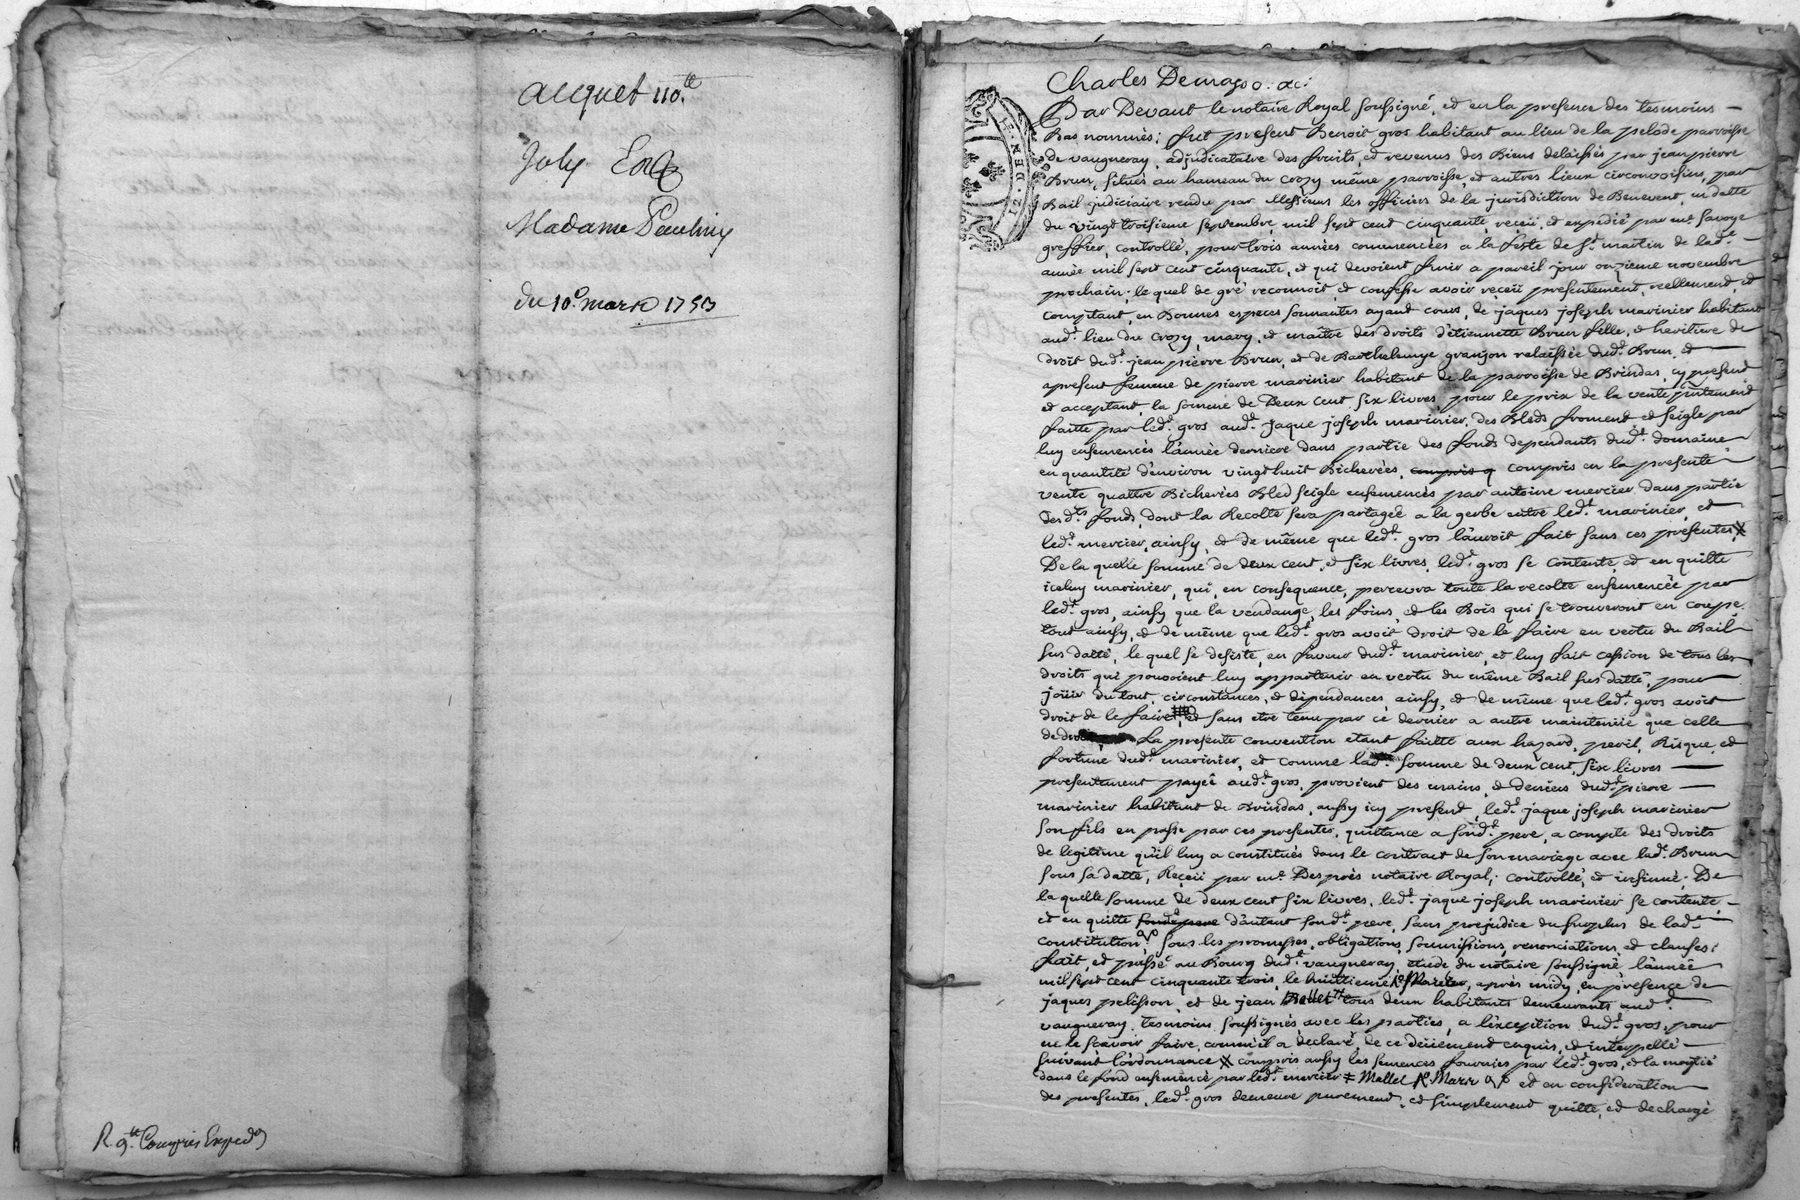 acquet 110.lt
Joly
Madame Pauliny
du 10e mars 1753
R 9.lt Compris Exped.on
GEN. DE L
12. DEN. 12
Charles Demasso &c.
Par Devant le notaire Royal soussigné, et en la presence des tesmoins
Bas nommés; fut present Benoit gros habitant au lieu de la pelode parroisse
de vaugneray, adjudicataire des fruits, et revenus des Biens delaissés par jean pierre
Brun, situés au hameau du Crozy même parroisse, et autres lieux circonvoisins, par
Bail judiciaire rendu par Messieurs les officiers de la jurisdiction de Benevent, en datte
du vingt troisieme septembre, mil sept cent cinquante, reçeü, et expedié par me. savoye
greffier, controllé, pour trois années commencées a la feste de St. martin de lad.e
année mil sept cent cinquante, et qui devoient finir a pareil jour onzieme novembre
prochain; le quel de gré reconnoit, et confesse avoir reçeü presentement, reellement, et
comptant, en Bonnes especes sonnantes ayant cours, de jaques joseph marinier habitant
aud.t lieu du Crozy, mary, et maître des droits d'étiennette Brun fille, et heritiere de
droit dud.t jean pierre Brun, et de Barthelemye granjon relaissée dud.t Brun, et
apresent femme de pierre marinier habitant de la parroisse de Brindas, cy present
et acceptant, la somme de Deux cent six livres, pour le prix de la vente p͠ntement
faitte par led.t gros aud.t jaque joseph marinier, des Bleds froment, et seigle par
luy ensemencés l'année derniere dans partie des fonds dependants dud.t domaine
en quantité d'environ vingt huit Bicherées, compris q compris en la presente
vente quattre Bicherées Bled seigle ensemencés par antoine mercier dans partie
desd.ts fonds, dont la Recolte sera partagée a la gerbe entre led.t marinier, et
led.t mercier, ainsy, et de même que led.t gros l'auroit fait sans ces presentes X
De la quelle somme de deux cent, et six livres, led.t gros se contente, et en quitte
iceluy marinier, qui, en consequence, percevra toute la recolte ensemencée par
led.t gros, ainsy que la vendange, les foins, et les Bois qui se trouveront en coupe,
tout ainsy, et de même que led.t gros avoit droit de le faire en vertu du Bail
sus datté, le quel se desiste, en faveur dud.t marinier, et luy fait cession de tous les
droits qui pouvoient luy appartenir en vertu du même Bail sus datté, pour
joüir du tout, circonstances, et dependances, ainsy, et de même que led.t gros avoit
droit de le faire, et sans etre tenu par ce dernier a autre maintenüe que celle
de droit La presente convention etant faitte aux hazard, peril, Risque, et
fortune dud.t marinier, et comme lad.e somme de deux cent, six livres
presentement payée aud.t gros, provient des mains, et deniers dud.t pierre
marinier habitant de Brindas, aussy icy present, led.t jaque joseph marinier
son fils en passe par ces presentes, quittance a sond.t pere, a compte des droits
de legitime qu'il luy a constitués dans le contract de son mariage avec lad.e Brun
sous sa datte, Reçeü par me. Desprès notaire Royal, controllé, et insinué; De
la quelle somme de deux cent six livres, led.t jaque joseph marinier se contente,
et en quitte sond.t pere d'autant sond.t pere, sans prejudice du surplus de lad.e
constitution, sous les promesses, obligations, soumissions, renonciations, et clauses;
fait, et passé au Bourg dud.t vaugneray, etude du notaire soussigné, l'année
mil sept cent cinquante trois, le huittieme Mars, après midy, en presence de
jaques pelisson, et de jean Mellet tous deux habitants demeurants aud.t
vaugneray, tesmoins soussignés avec les parties, a l'exception dud.t gros, pour
ne le sçavoir faire, comm'il a declaré, de ce deüement enquis, et interpellé
suivant l'ordonnance X compris aussy les semences fournies par led.t gros, et la moytié
dans le fond ensemencé par led.t mercier ≠ Mellet Mars et en consideration
des presentes, led.t gros demeure purement, et simplement quitte, et dechargé